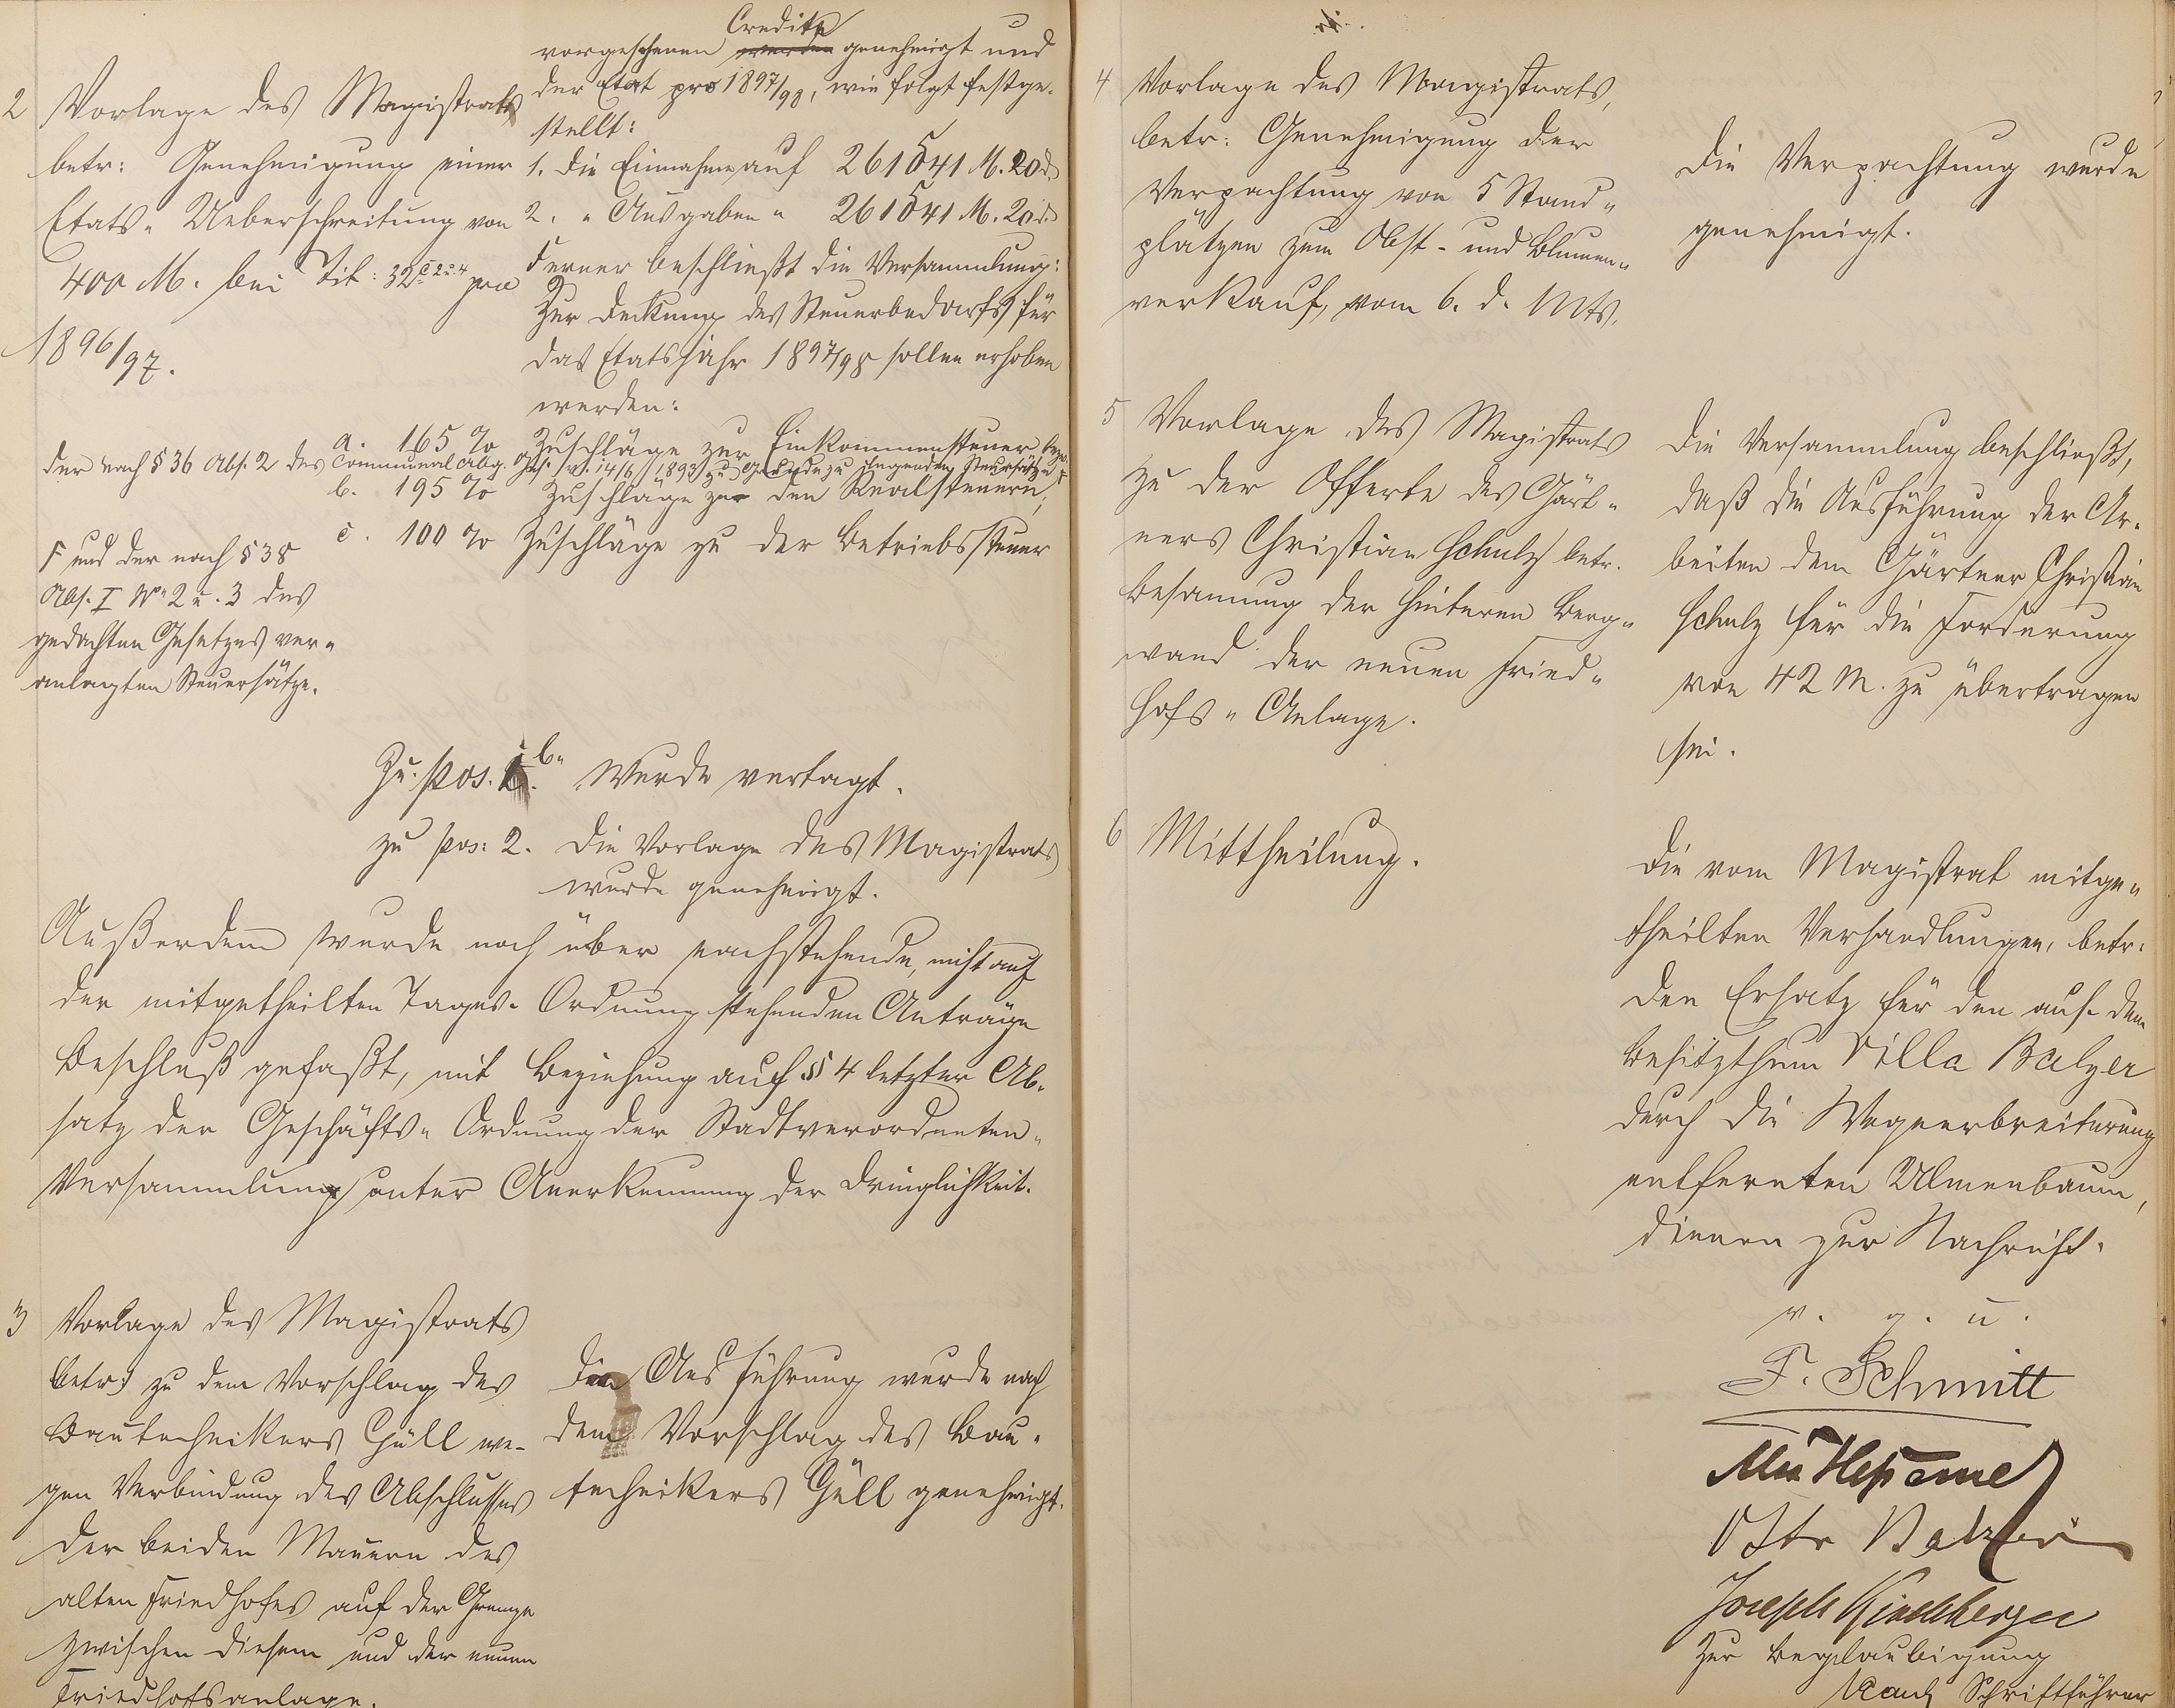 Credite
vorgesehenen werden genehmigt und
der Etat pro 1897/98, wie folgt festge-
stellt:
1. die Einnahme auf 261541 M. 20 d.
2. " Ausgaben " 261541 M. 20 d.
Ferner beschließt die Versammlung:
Zur Deckung des Steuerbedarfs für
das Etatsjahr 1897/98 sollen erhoben
werden:
2 Vorlage des Magistrats
betr: Genehmigung einer
Etats-Ueberschreitung von
400 M. bei Tit: 32 pro
1896/97.
a. 165 % Zuschläge zur Einkommensteuer bezw.
der nach § 36 Abs. 2 des Communal Abg. Ges. v. 14/6 1893 zu Grunde zu legenden Steuersätze F
b. 195 % Zuschläge zu den Realsteuern,
c. 100 % Zuschläge zu der Betriebssteuer
F und der nach § 38
Abs. I No 2 u. 3 des
gedachten Gesetzes ver-
anlagten Steuersätze.
Zu pos. 1 b. Wurde vertagt.
zu pos: 2. Die Vorlage des Magistrats
wurde genehmigt.
Außerdem wurde noch über nachstehende, nicht auf
der mitgetheilten Tages-Ordnung stehenden Anträge
Beschluß gefaßt, mit Beziehung auf § 4 letzter Ab-
satz der Geschäfts-Ordnung der Stadtverordneten-
Versammlung unter Anerkennung der Dringlichkeit.
3 Vorlage des Magistrats
betr: zu dem Vorschlag des
Bautechnikers Güll we-
gen Verbindung des Abschlusses
der beiden Mauern des
alten Friedhofes auf der Grenze
zwischen diesem und der neuen
Friedhofsanlage.
Die Ausführung wurde nach
dem Vorschlag des Bau-
technikers Güll genehmigt.
4 Vorlage des Magistrats,
betr: Genehmigung der
Verpachtung von 5 Stand-
plätzen zum Obst- und Blumen-
verkauf, vom 6. d. Mts.
Die Verpachtung wurde
genehmigt.
5 Vorlage des Magistrats
zu der Offerte des Gärt-
ners Christian Schulz betr.
Besamung der hinteren Berg-
wand der neuen Fried-
hofs-Anlage.
Die Versammlung beschließt,
daß die Ausführung der Ar-
beiten dem Gärtner Christian
Schulz für die Forderung
von 42 M. zu übertragen
sei.
6 Mittheilung.
Die vom Magistrat mitge-
theilten Verhandlungen, betr:
den Ersatz für den auf dem
Besitzthum Villa Balzer
durch die Wegverbreiterung
entfernten Ulmenbaum,
dienen zur Nachricht.
v. g. u.
F. Schmitt
Otto Balzer
Joseph Hirschberger
Zur Beglaubigung
Schriftführer